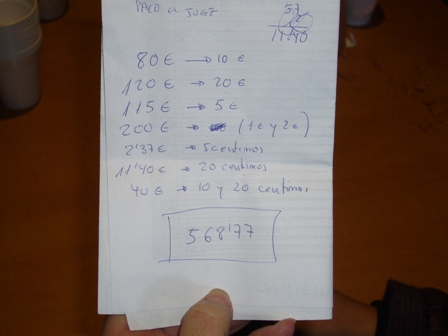 PACO
57
11'40
80 € → 10 €
120 € → 20 €
115 € → 5 €
200 € → (1€ y 2€)
2'37 € → 5 centimos
11'40 € → 20 centimos
40 € → 10 y 20 centimos
568'77